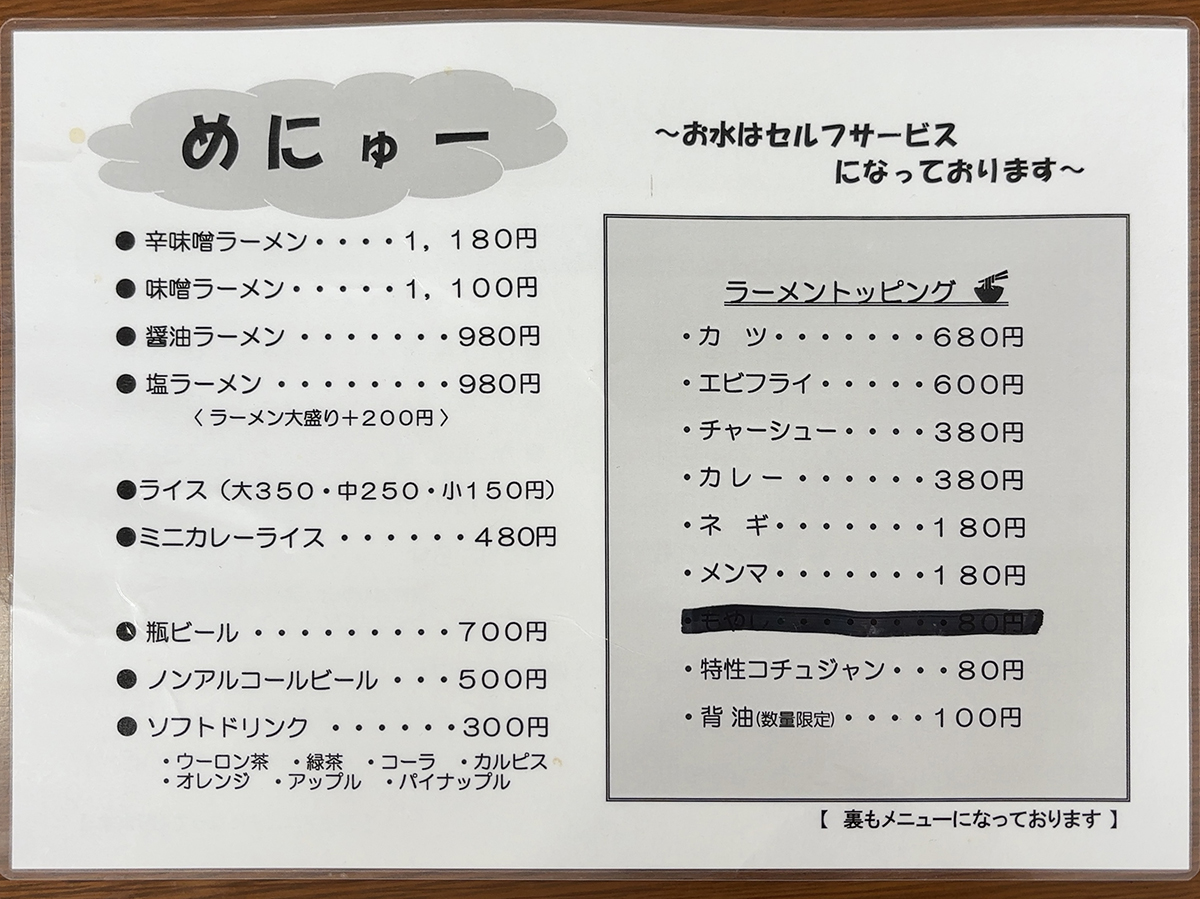 めにゅー
～お水はセルフサービス
になっております～
● 辛味噌ラーメン・・・・１，１８０円
● 味噌ラーメン・・・・・１，１００円
● 醤油ラーメン・・・・・・・９８０円
● 塩ラーメン・・・・・・・・９８０円
〈 ラーメン大盛り＋２００円 〉
●ライス（大３５０・中２５０・小１５０円）
●ミニカレーライス・・・・・・４８０円
● 瓶ビール・・・・・・・・・７００円
● ノンアルコールビール・・・５００円
● ソフトドリンク・・・・・・３００円
・ウーロン茶　・緑茶　・コーラ　・カルピス
・オレンジ　・アップル　・パイナップル
ラーメントッピング
・カ　ツ・・・・・・・６８０円
・エビフライ・・・・・６００円
・チャーシュー・・・・３８０円
・カ レ ー・・・・・・３８０円
・ネ　ギ・・・・・・・１８０円
・メンマ・・・・・・・１８０円
・もやし・・・・・・・・８０円
・特性コチュジャン・・・８０円
・背 油(数量限定)・・・・１００円
【 裏もメニューになっております 】